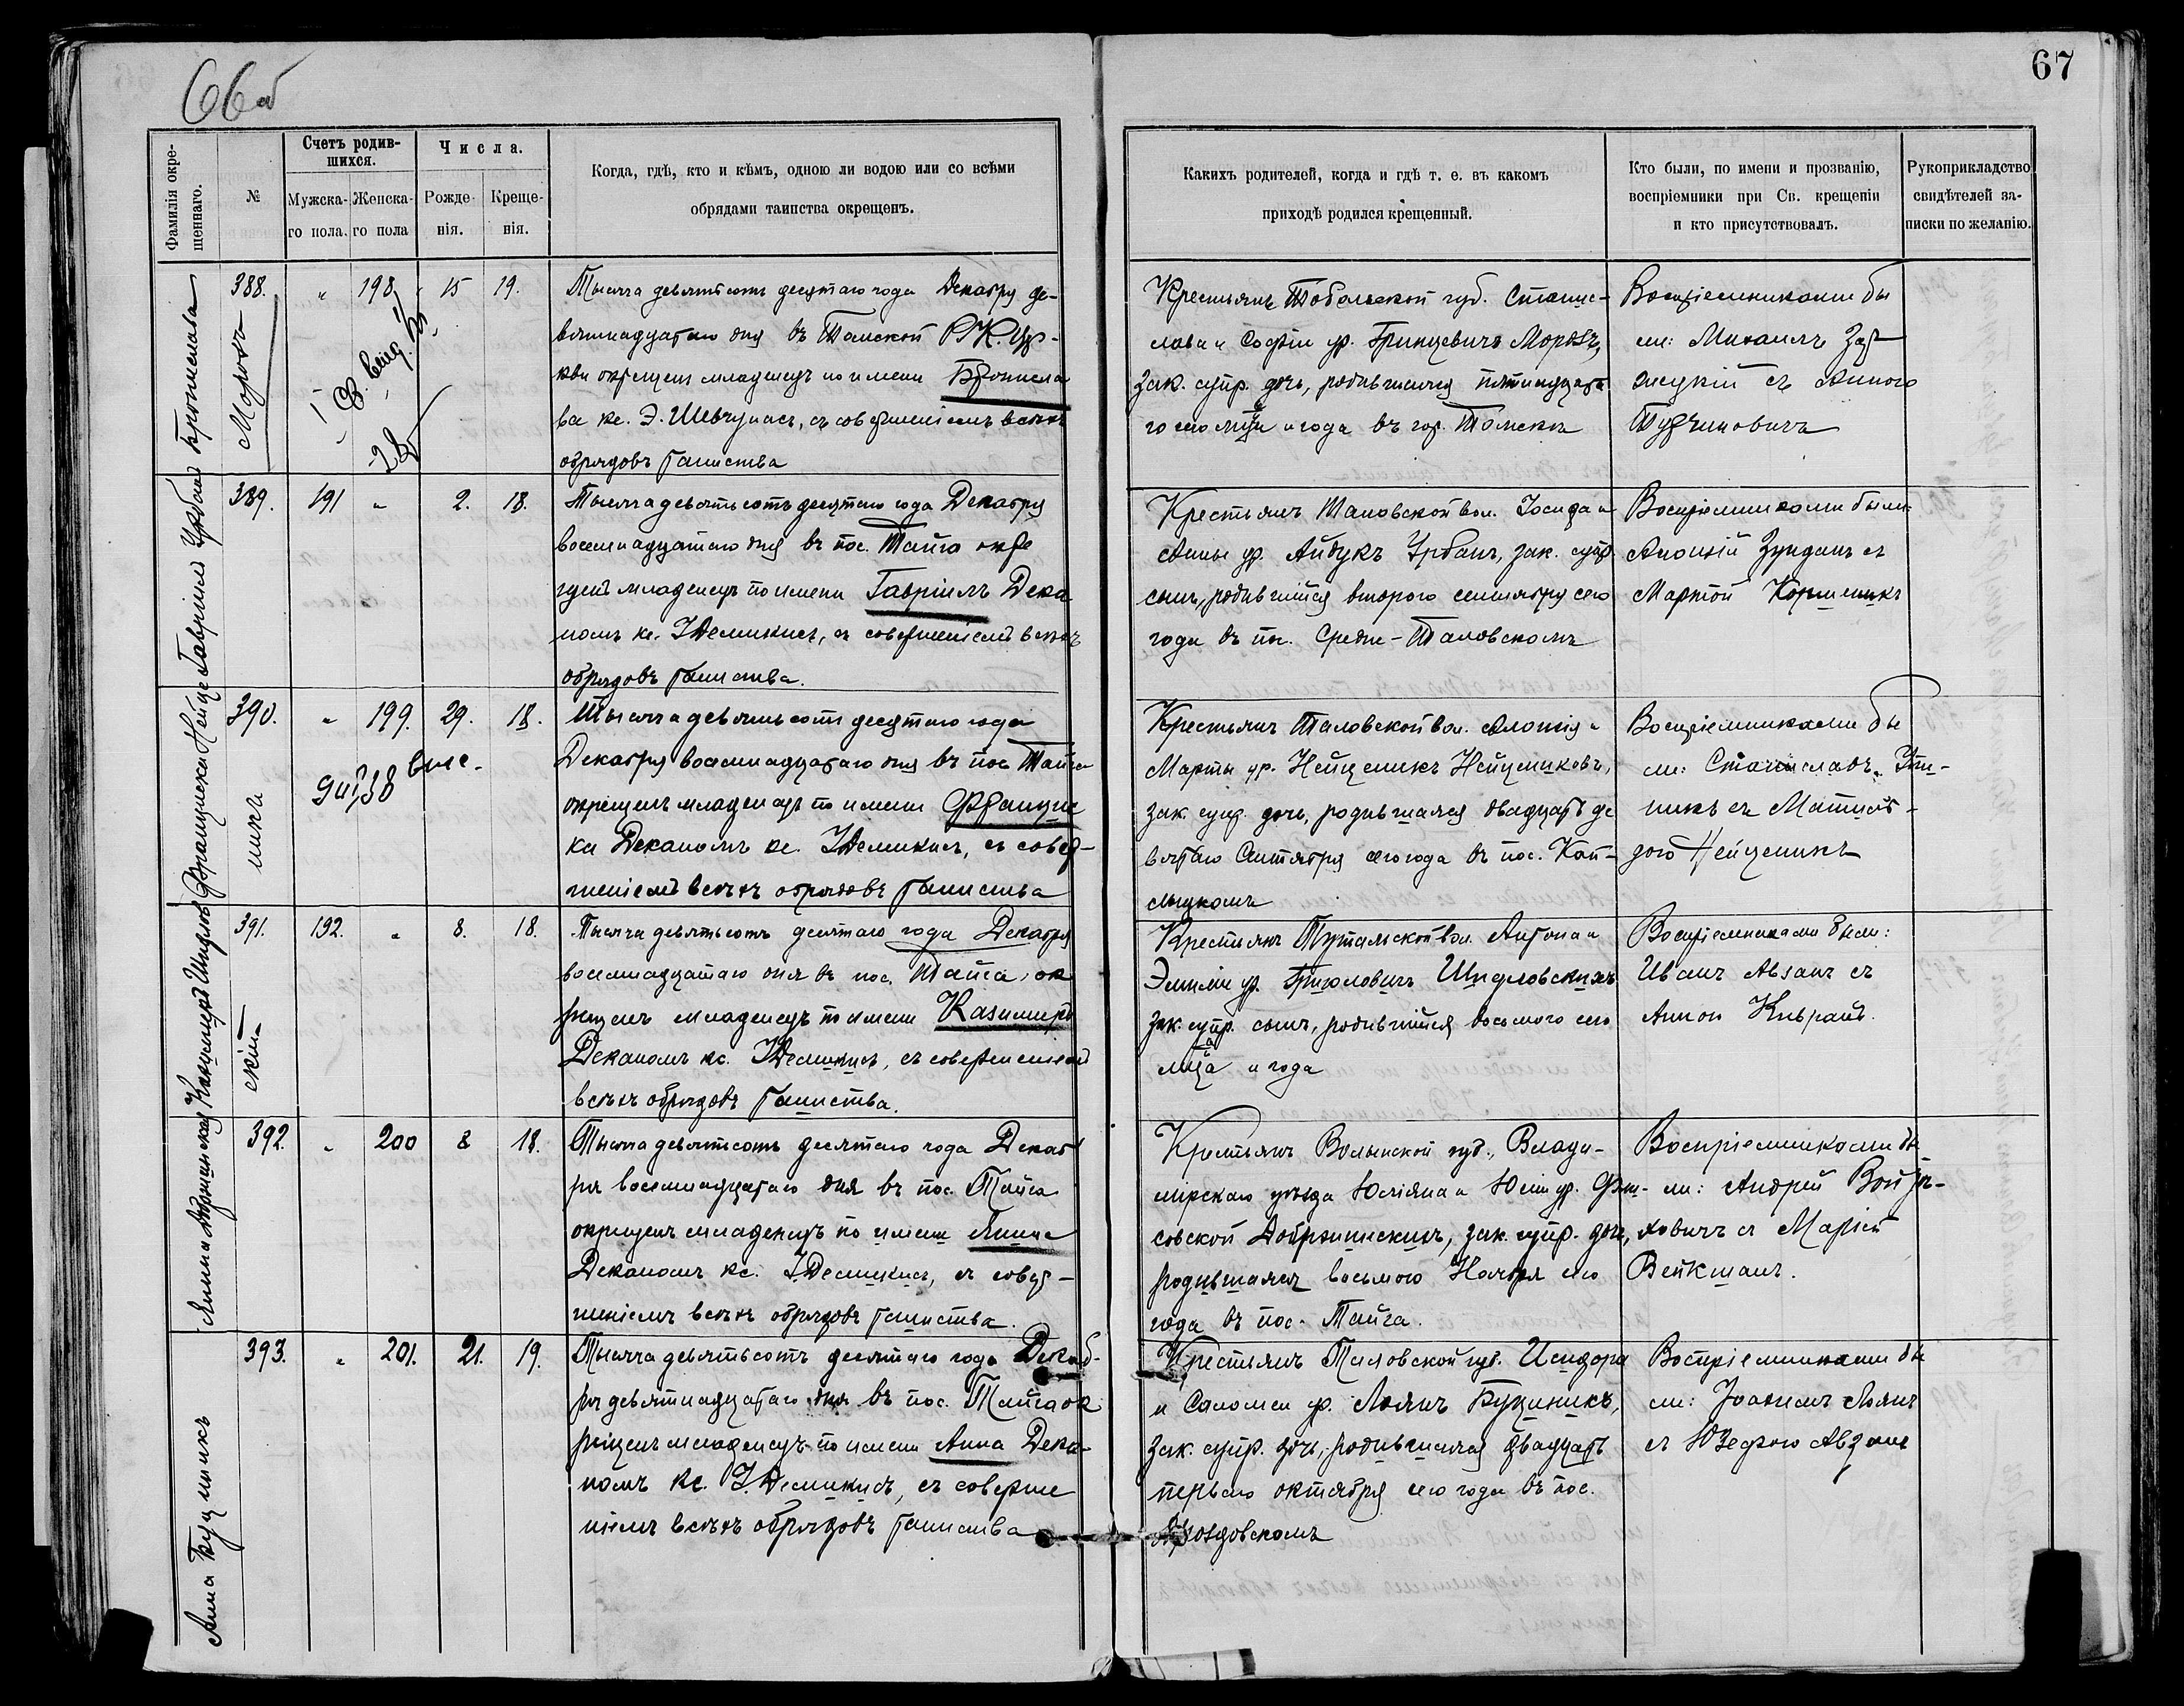 66об
67
Фамилія окре-
щеннаго.
№
Счетъ родив-
шихся.
Мужска-
го пола.
Женска-
го пола
Числа.
Рожде-
нія.
Креще-
нія.
Когда, гдѣ, кто и кѣмъ, одною ли водою или со всѣми
обрядами таинства окрещенъ.
Какихъ родителей, когда и гдѣ т. е. въ какомъ
приходѣ родился крещенный.
Кто были, по имени и прозванію,
воспріемники при Св. крещеніи
и кто присутствовалъ.
Рукоприкладство
свидѣтелей за-
писки по желанію.
Бронислава
Морозъ
388. " 198 15 19.
Тысяча девятьсотъ десятаго года Декабря де-
вятнадцатаго дня въ Томской Р. К. Цер-
кви окрещенъ младенецъ по имени Бронисла
ва кс. Э. Шевчунасъ, съ совершеніемъ всѣхъ
обрядовъ таинства
Крестьянъ Тобольской губ. Станис-
лава и Софіи ур. Гринцевичъ Морозъ,
зак. супр. дочь, родившаяся пятнадцата
го сего мѣсяца и года въ гор. Томскѣ
Воспріемниками бы
ли: Михаилъ
съ Анною
Гавріилъ Урбанъ
389. 191 " 2. 18.
Тысяча девятьсотъ десятаго года Декабря
восемнадцатаго дня въ пос. Тайга окре
щенъ младенецъ по имени Гавріилъ Дека
номъ кс. І Демикисъ, съ совершеніемъ всѣхъ
обрядовъ таинства.
Крестьянъ Таловской вол. Іосифа и
Анны ур. Айбукъ Урбанъ, зак. супр
сынъ, родившійся второго сентября сего
года въ пос. Средне-Таловскомъ
Воспріемниками были:
Алоизій Зунданъ съ
Мартой
Франциска Нейце
никъ
390. " 199. 29. 18.
Тысяча девятьсотъ десятаго года
Декабря восемнадцатаго дня въ пос Тайга
окрещенъ младенецъ по имени Францис
ка Деканомъ кс. І Демикисъ, съ совер-
шеніемъ всѣхъ обрядовъ таинства
Крестьянъ Таловской вол. Алоизія и
Марты ур. Нейценикъ Нейцениковъ,
зак. супр. дочь, родившаяся двадцать де
вятаго Сентября сего года въ пос. Кол-
мыцкомъ
Воспріемниками бы
ли: Станиславъ
никъ съ Матиль-
дою Нейценикъ
Казиміръ Шидлов
скій
391. 192. " 8. 18.
Тысяча девятьсотъ десятаго года Декабря
восемнадцатаго дня въ пос. Тайга, ок
рещенъ младенецъ по имени Казиміръ
Деканомъ кс. І Демикисъ, съ совершеніемъ
всѣхъ обрядовъ таинства.
Крестьянъ Тутальской вол. Антона и
Эмиліи ур. Григоловичъ Шидловскихъ
зак. супр. сынъ, родившійся восьмого сего
м-ца и года
Воспріемниками были:
Иванъ Авзанъ съ
Анною
Янина Добржинская
392. " 200 8 18.
Тысяча девятьсотъ десятаго года Декаб
ря восемнадцатаго дня въ пос. Тайга
окрещенъ младенецъ по имени Янина
Деканомъ кс. І. Демикисъ, съ совер-
шеніемъ всѣхъ обрядовъ таинства.
Крестьянъ Волынской губ., Влади-
мірскаго уѣзда Юліяна и Юліи ур.
совской Добржинскихъ, зак. супр. дочь,
родившаяся восьмого Ноября сего
года въ пос. Тайга.
Воспріемниками бы
ли: Андрей Войце-
ховичъ съ Маріей
Вейкшанъ.
Анна Буцникъ
393. " 201. 21. 19.
Тысяча девятьсотъ десятаго года Декаб-
ря девятнадцатаго дня въ пос. Тайга ок
рещенъ младенецъ по имени Анна Дека-
номъ кс. І. Демикисъ, съ соверше
ніемъ всѣхъ обрядовъ таинства
Крестьянъ Таловской губ. Исидора
и Саломеи ур. Лоянъ Буциникъ,
зак. супр. дочь, родившаяся двадцать
перваго октября сего года въ пос.
Дроздовскомъ
Воспріемниками бы
ли: Іоакимъ Лоянъ
съ Юзефою Авзанъ